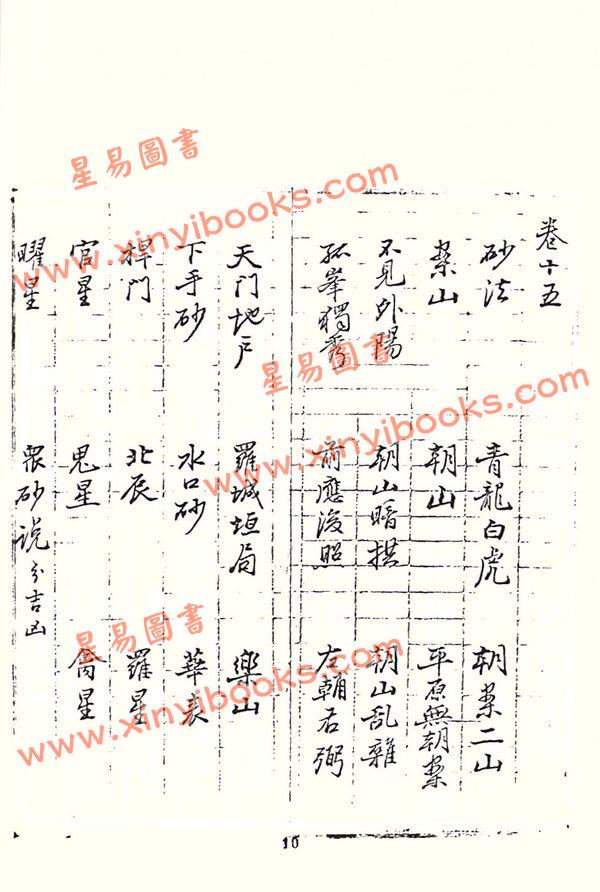 卷十五
砂法 青龍白虎 朝案二山
案山 朝山 平原無朝案
不見外陽 朝山暗拱 朝山乱雜
孤峯獨秀 前應後照 左輔右弼
天門地户 羅城垣局 樂山
下手砂 水口砂 華表
捍門 北辰 羅星
官星 鬼星 禽星
曜星 眾砂説分吉凶
10
星易圖書
www.xinyibooks.com
星易圖書
www.xinyibooks.com
星易圖書
www.xinyibooks.com